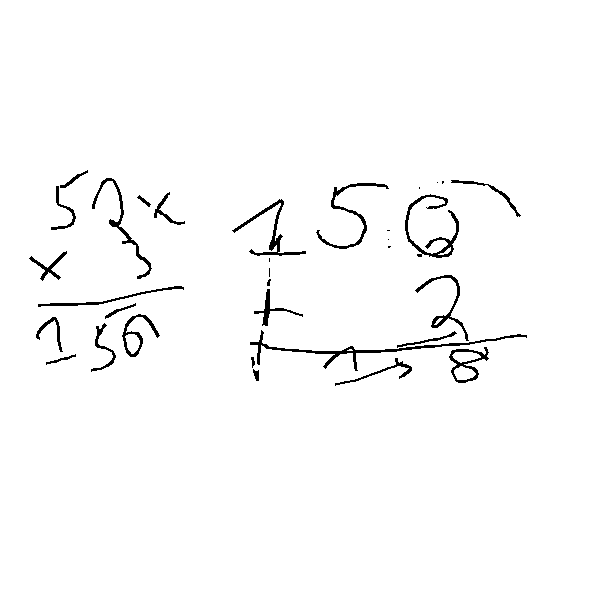 52x
× 3
156
156
+ 2
158